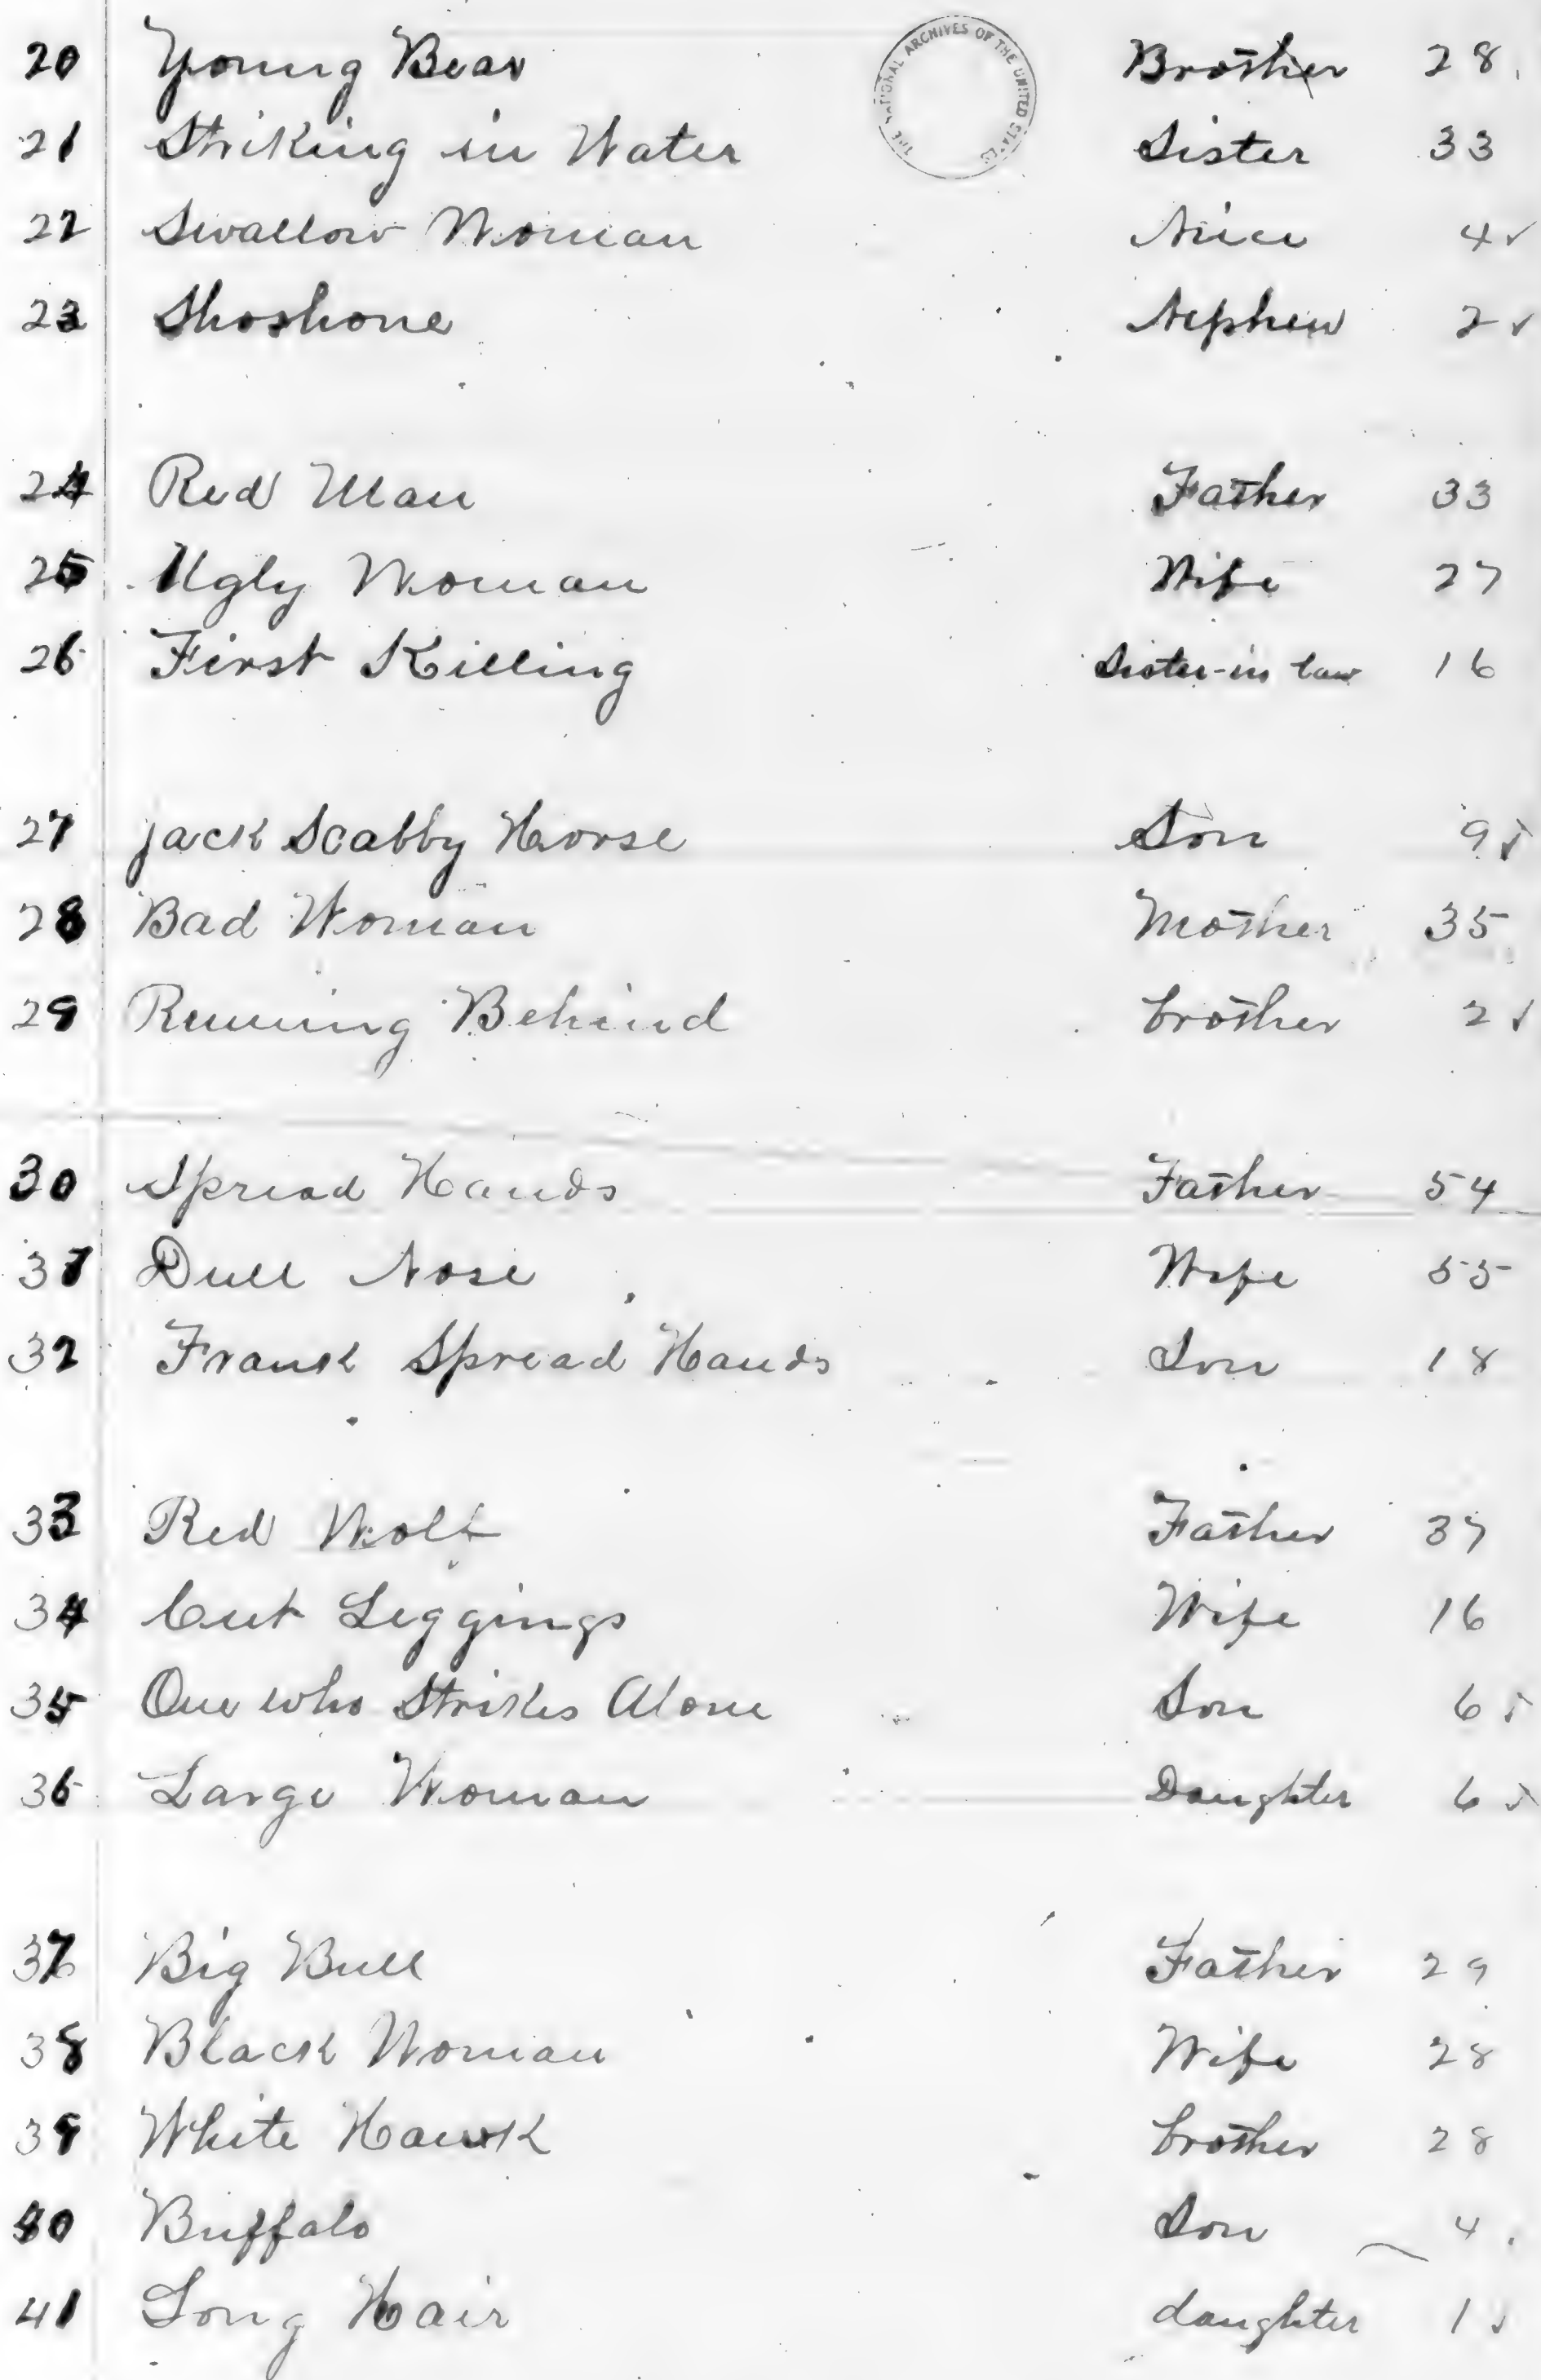 THE NATIONAL ARCHIVES OF THE UNITED STATES
20 Young Bear Brother 28
21 Striking in Water Sister 33
22 Swallow Woman Niece 4 ✓
23 Shoshone Nephew 2 ✓
24 Red Man Father 33
25 Ugly Woman Wife 27
26 First Killing Sister-in law 16
27 Jack Scabby Horse Son 9 ✓
28 Bad Woman Mother 35
29 Running Behind brother 2 ✓
30 Spread Hands Father 54
31 Dull Nose Wife 55
32 Frank Spread Hands Son 18
33 Red Wolf Father 37
34 Cut Leggings Wife 16
35 One who Strikes Alone Son 6 ✓
36 Large Woman Daughter 6 ✓
37 Big Bull Father 29
38 Black Woman Wife 28
39 White Hawk brother 28
40 Buffalo Son 4
41 Long Hair daughter 1 ✓